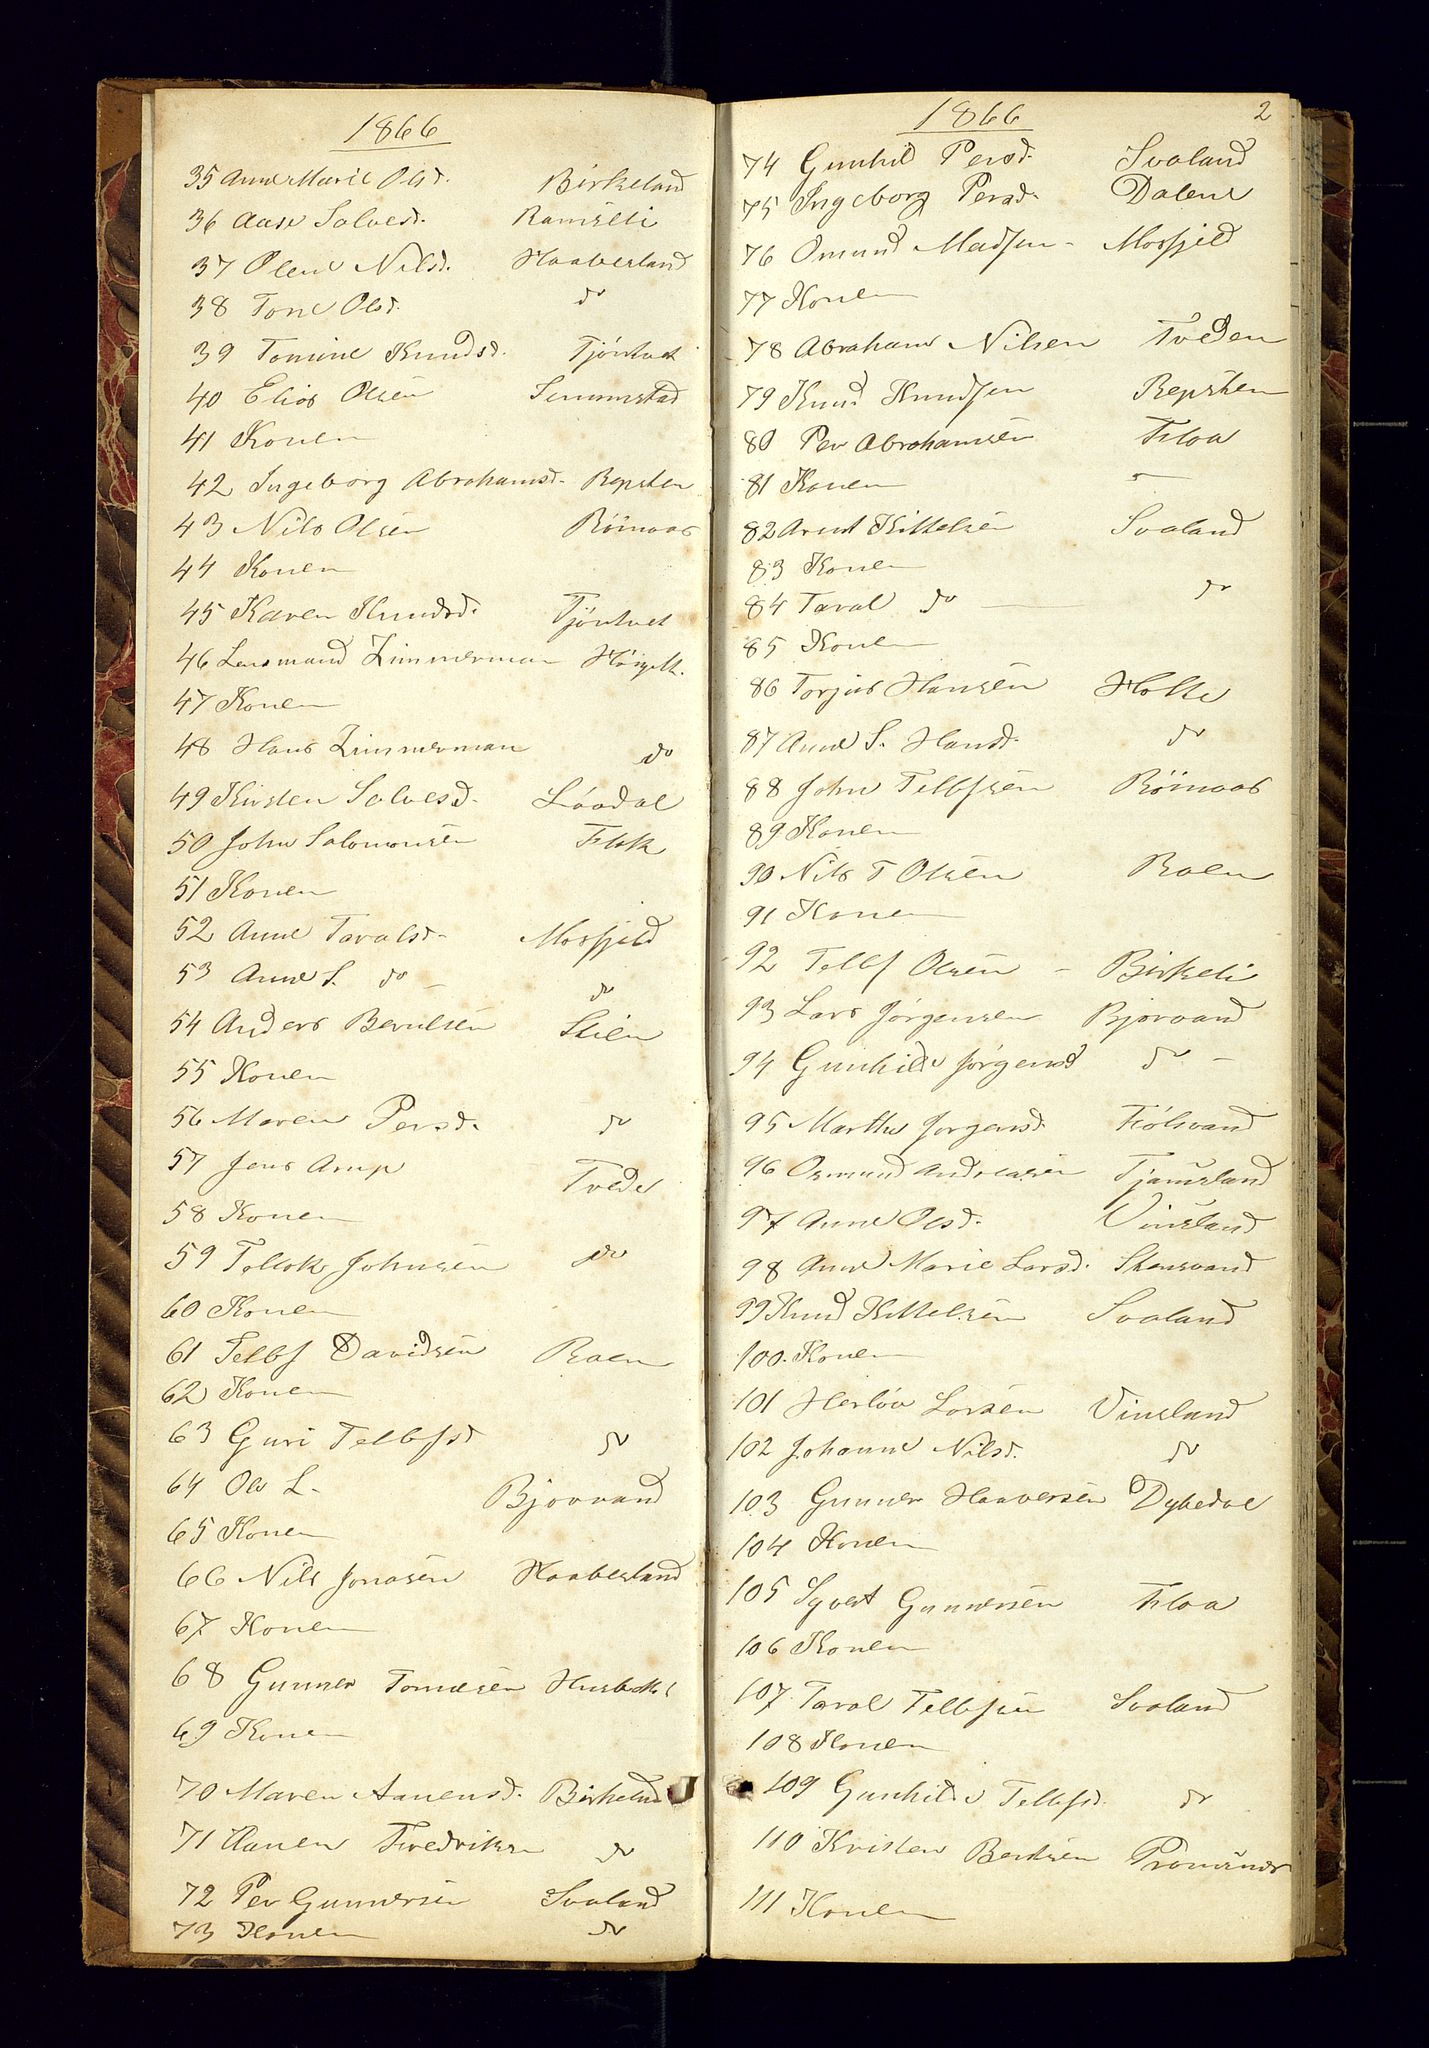 1866
35 Anne Marie Olsd. Birkeland
36 Aase Salvesd. Ramseli
37 Olene Nilsd. Haaberland
38 Tone Olsd. do
39 Tomine Knudsd. Tjöntvet
40 Elias Olsen Senumstad
41 Konen
42 Ingeborg Abrahamsd. Repsten
43 Nils Olsen Röinaas
44 Konen
45 Karen Knudsd. Tjöntvet
46 Lensmand Zimmerman
47 Konen
48 Hans Zimmerman do
49 Kirsten Salvesd. Lövdal
50 John Salomonsen Flak
51 Konen
52 Anne Taralsd. Mosfjeld
53 Anne S. do do
54 Anders Berulsen Stien
55 Konen
56 Maren Persd. do
57 Jens Arup Tvede
58 Konen
59 Tellok Johnsen do
60 Konen
61 Tellef Davidsen Boen
62 Konen
63 Guri Tellefsd do
64 Ole L. Bjorvand
65 Konen
66 Nils Jonasen Haaberland
67 Konen
68 Gunner Tomesen
69 Konen
70 Maren Aanensd. Birkeland
71 Aanen Fredriksen do
72 Per Gunnersen Svaland
73 Konen do
1866 2
74 Gunhild Persd. Svaland
75 Ingeborg Persd. Dalene
76 Omund Madsen - Mosfjeld
77 Konen
78 Abraham Nilsen Tveden
79 Knud Knudsen Repsten
80 Per Abrahamsen Floa
81 Konen -
82 Arent Kittelsen Svaland
83 Konen
84 Taral do - do
85 Konen
86 Torjus Hansen Holte
87 Anne S. Hansd. do
88 John Tellefsen Röinaas
89 Konen
90 Nils T Olsen Boen
91 Konen
92 Tellef Olsen - Birkeli
93 Lars Jörgensen Bjorvand
94 Gunhilde Jörgensd do -
95 Marthe Jorgensd. Fiölsvand
96 Osmund Andreasen Tjamsland
97 Anne Olsd. Vinsland
98 Anne Marie Larsd. Stensvand
99 Knud Kittelsen Svaland
100. Konen
101 Herlöv Larsen Vinsland
102 Johanne Nilsd. do
103 Gunner Haaversen Dybedal
104 Konen
105 Syvert Gunnersen Floa
106 Konen
107. Taral Tellefsen Svaland
108 Konen
109 Gunhilde Tellefsd. do
110 Kristen Bentsen
111 Konen